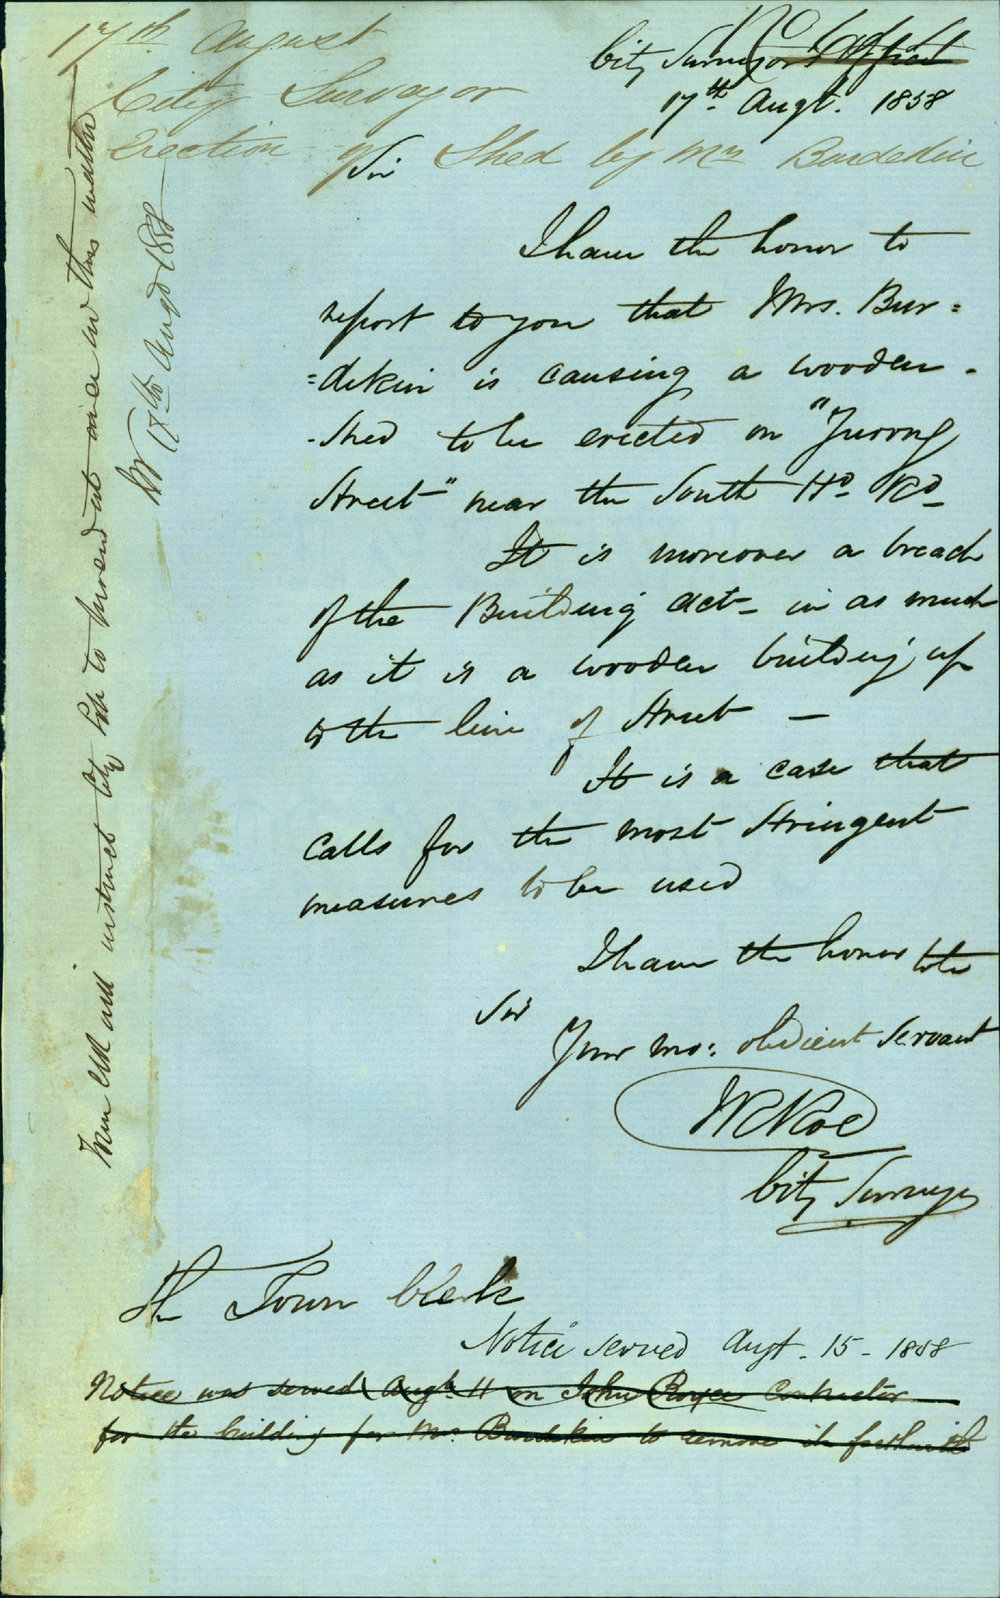 17th August
City Surveyor
Erection of Shed by Mrs Burdekin
City Surveyors Office
17th Augt. 1858
Sir
I have the honor to
report to you that Mrs. Bur=
=dekin is causing a wooden -
-Shed to be erected on "Yurong
Street" near the South Hd. Rd
It is moreover a breach
of the Building Act - in as much
as it is a wooden building up
to the line of Street —
It is a case that
calls for the most Stringent
measures to be used
I have the honor to be
Sir
Your mo: obedient Servant
City Surveyor
The Town Clerk
Notice served Augt. 15 - 1858
Notice was served Augt 11 on John Royce Contractor
for the building for Mrs Burdekin to remove it forthwith
Town Clk will instruct City Sol to proceed at once in this matter
17th Augt 1858